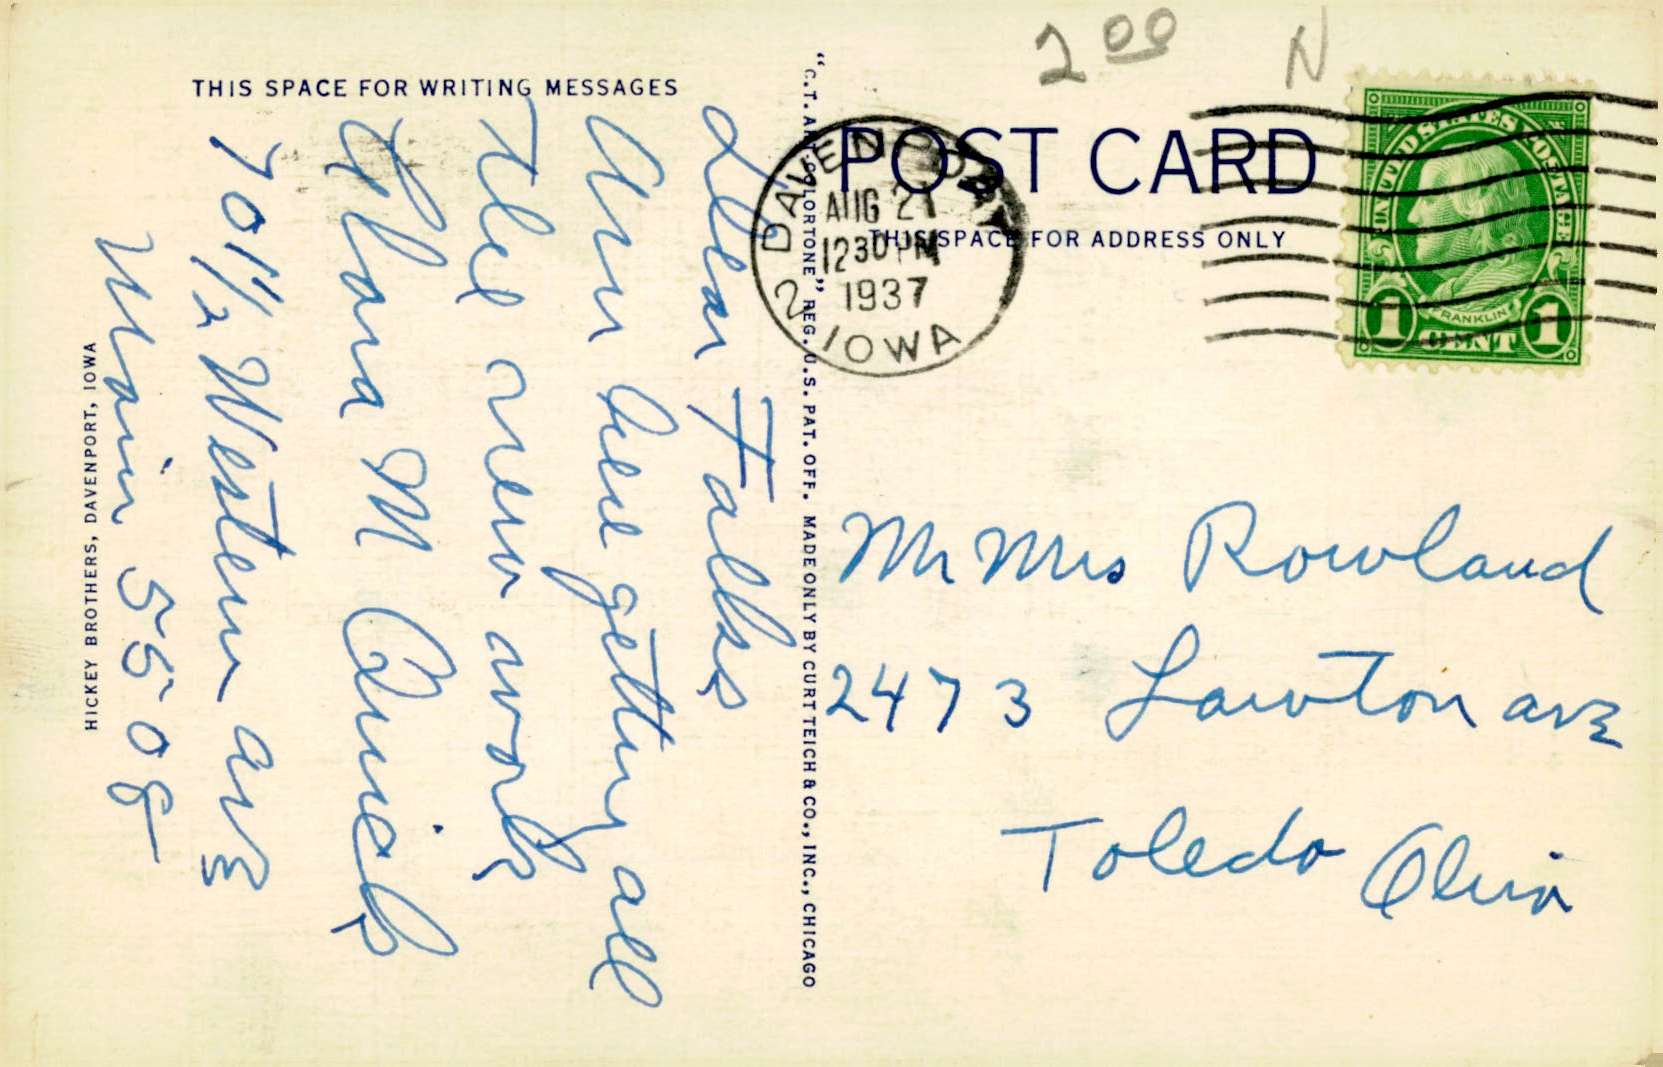 2 00 N
THIS SPACE FOR WRITING MESSAGES
Dear Folks
Am here getting all
the new work
Flora M
701½ Western ave
Main 5508
HICKEY BROTHERS, DAVENPORT, IOWA
"C.T. ART-COLORTONE" REG. U.S. PAT. OFF. MADE ONLY BY CURT TEICH & CO., INC., CHICAGO
POST CARD
THIS SPACE FOR ADDRESS ONLY
DAVENPORT
AUG 21
1230 PM
1937
2 IOWA
UNITED STATES POSTAGE
FRANKLIN
1 CENT 1
Mr Mrs Rowland
2473 Lawton ave
Toledo Ohio